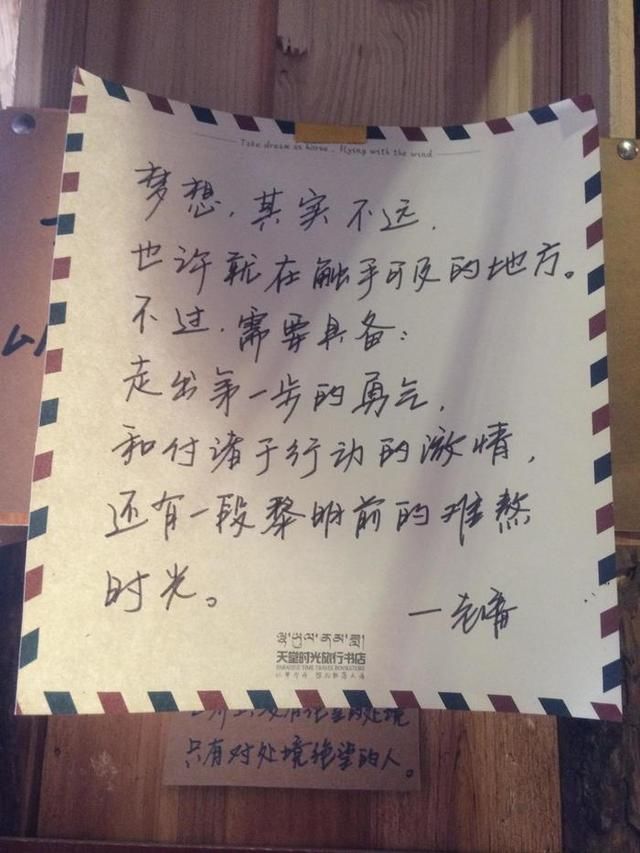 Take dream as horse , flying with the wind
梦想，其实不远，
也许就在触手可及的地方。
不过，需要具备：
走出第一步的勇气，
和付诸于行动的激情，
还有一段黎明前的难熬
时光。
天堂时光旅行书店
PARADISE TIME TRAVEL BOOKSTORE
只有对处境绝望的人。